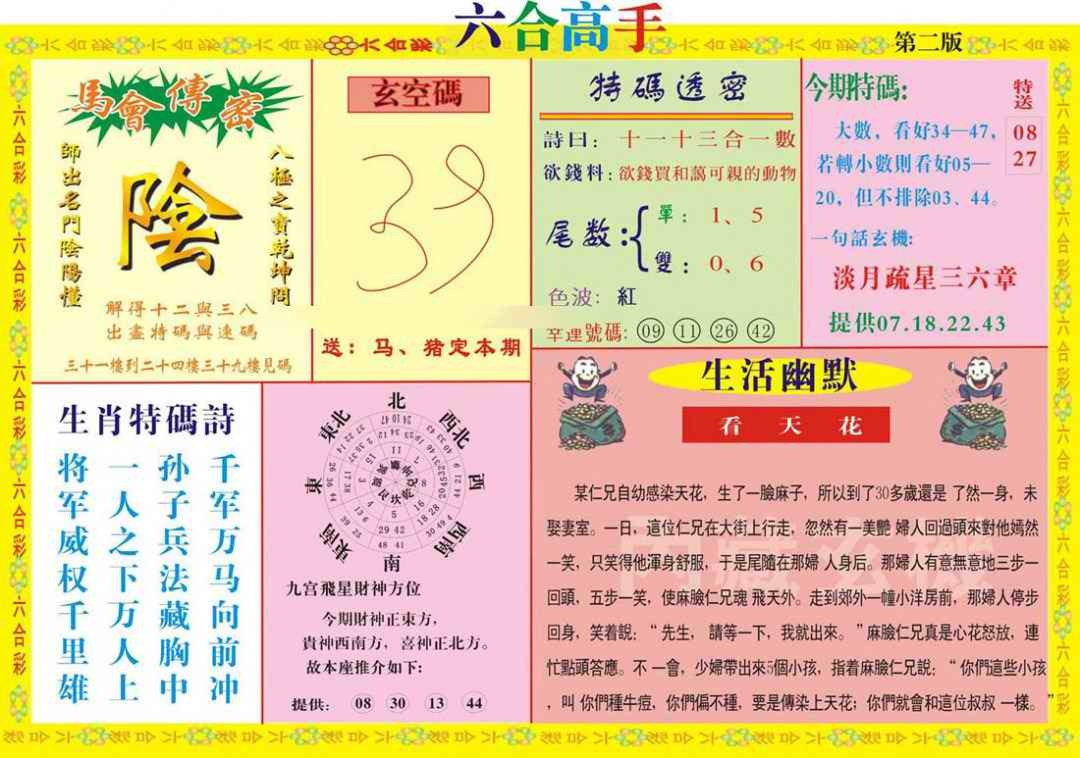 六合高手
第二版
馬會傳密
八極之寶乾坤問
陰
師出名門陰陽懂
解得十二與三八
出盡特碼與連碼
三十一樓到二十四樓三十九樓見碼
玄空碼
送：马、猪定本期
特碼透密
詩曰：十一十三合一數
欲錢料：欲錢買和藹可親的動物
尾数：
單：1、5
雙：0、6
色波：紅
幸運號碼：09 11 26 42
今期特碼:
特送
08
27
大數，看好34—47，
若轉小數則看好05—
20，但不排除03、44。
一句話玄機:
淡月疏星三六章
提供07.18.22.43
生肖特碼詩
千军万马向前冲
孙子兵法藏胸中
一人之下万人上
将军威权千里雄
北
西北
西
西南
南
東南
東
東北
九宫飛星財神方位
今期財神正東方，
貴神西南方，喜神正北方。
故本座推介如下:
提供：08 30 13 44
生活幽默
看天花
某仁兄自幼感染天花，生了一臉麻子，所以到了30多歲還是 了然一身，未
娶妻室。一日，這位仁兄在大街上行走，忽然有一美艷 婦人回過頭來對他嫣然
一笑，只笑得他渾身舒服，于是尾隨在那婦 人身后。那婦人有意無意地三步一
回頭，五步一笑，使麻臉仁兄魂 飛天外。走到郊外一幢小洋房前，那婦人停步
回身，笑着説：“先生，請等一下，我就出來。”麻臉仁兄真是心花怒放，連
忙點頭答應。不 一會，少婦帶出來5個小孩，指着麻臉仁兄説：“你們這些小孩
，叫 你們種牛痘，你們偏不種，要是傳染上天花；你們就會和這位叔叔 一樣。”